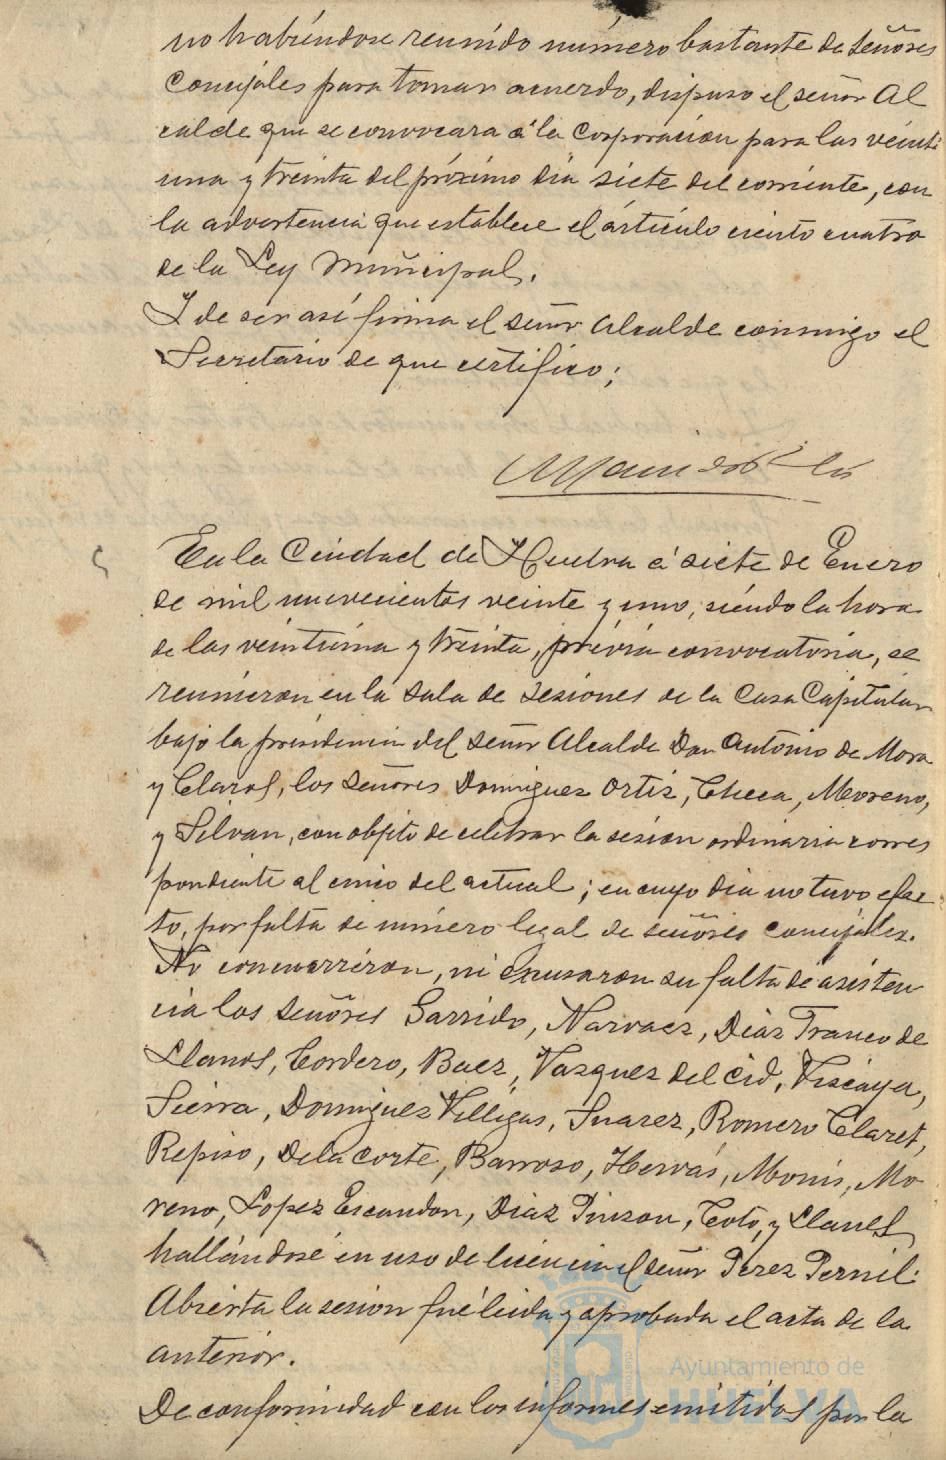 no habiéndose reunido número bastante de señores
Concejales para tomar acuerdo, dispuso el señor Al
calde que se convocara á la Corporación para las veinti
una y treinta del próximo dia siete del corriente, con
la advertencia que establece el artículo ciento cuatro
de la Ley Municipal.
Y de ser así firma el señor Alcalde conmigo el
Secretario de que certifico;
En la Ciudad de Huelva á siete de Enero
de mil novecientos veinte y uno, siendo la hora
de las veintiuna y treinta, prévia convocatoria, se
reunieron en la Sala de Sesiones de la Casa Capitular
bajo la presidencia del señor Alcalde Don Antonio de Mora
y Claros, los señores Dominguez Ortiz, Checa, Moreno,
y Silvan, con objeto de celebrar la sesion ordinaria corres
pondiente al cinco del actual; en cuyo dia no tuvo efec
to, por falta de número legal de señores Concejales.
No concurrieron, ni excusaron su falta de asisten
cia los señores Garrido, Narvaez, Diaz Franco de
Llanos, Cordero, Baez, Vazquez del Cid, Viscaya,
Sierra, Dominguez Villegas, Suarez, Romero Claret,
Repiso, De la Corte, Barroso, Hervás, Monis, Mo
reno, Lopez Escandon, Diaz Pinzon, Coto, y Llanes,
hallándose en uso de licencia el señor Perez Pernil.
Abierta la sesion fué leida y aprobada el acta de la
anterior.
De conformidad con los informes emitidos por la
Ayuntamiento de
HUELVA